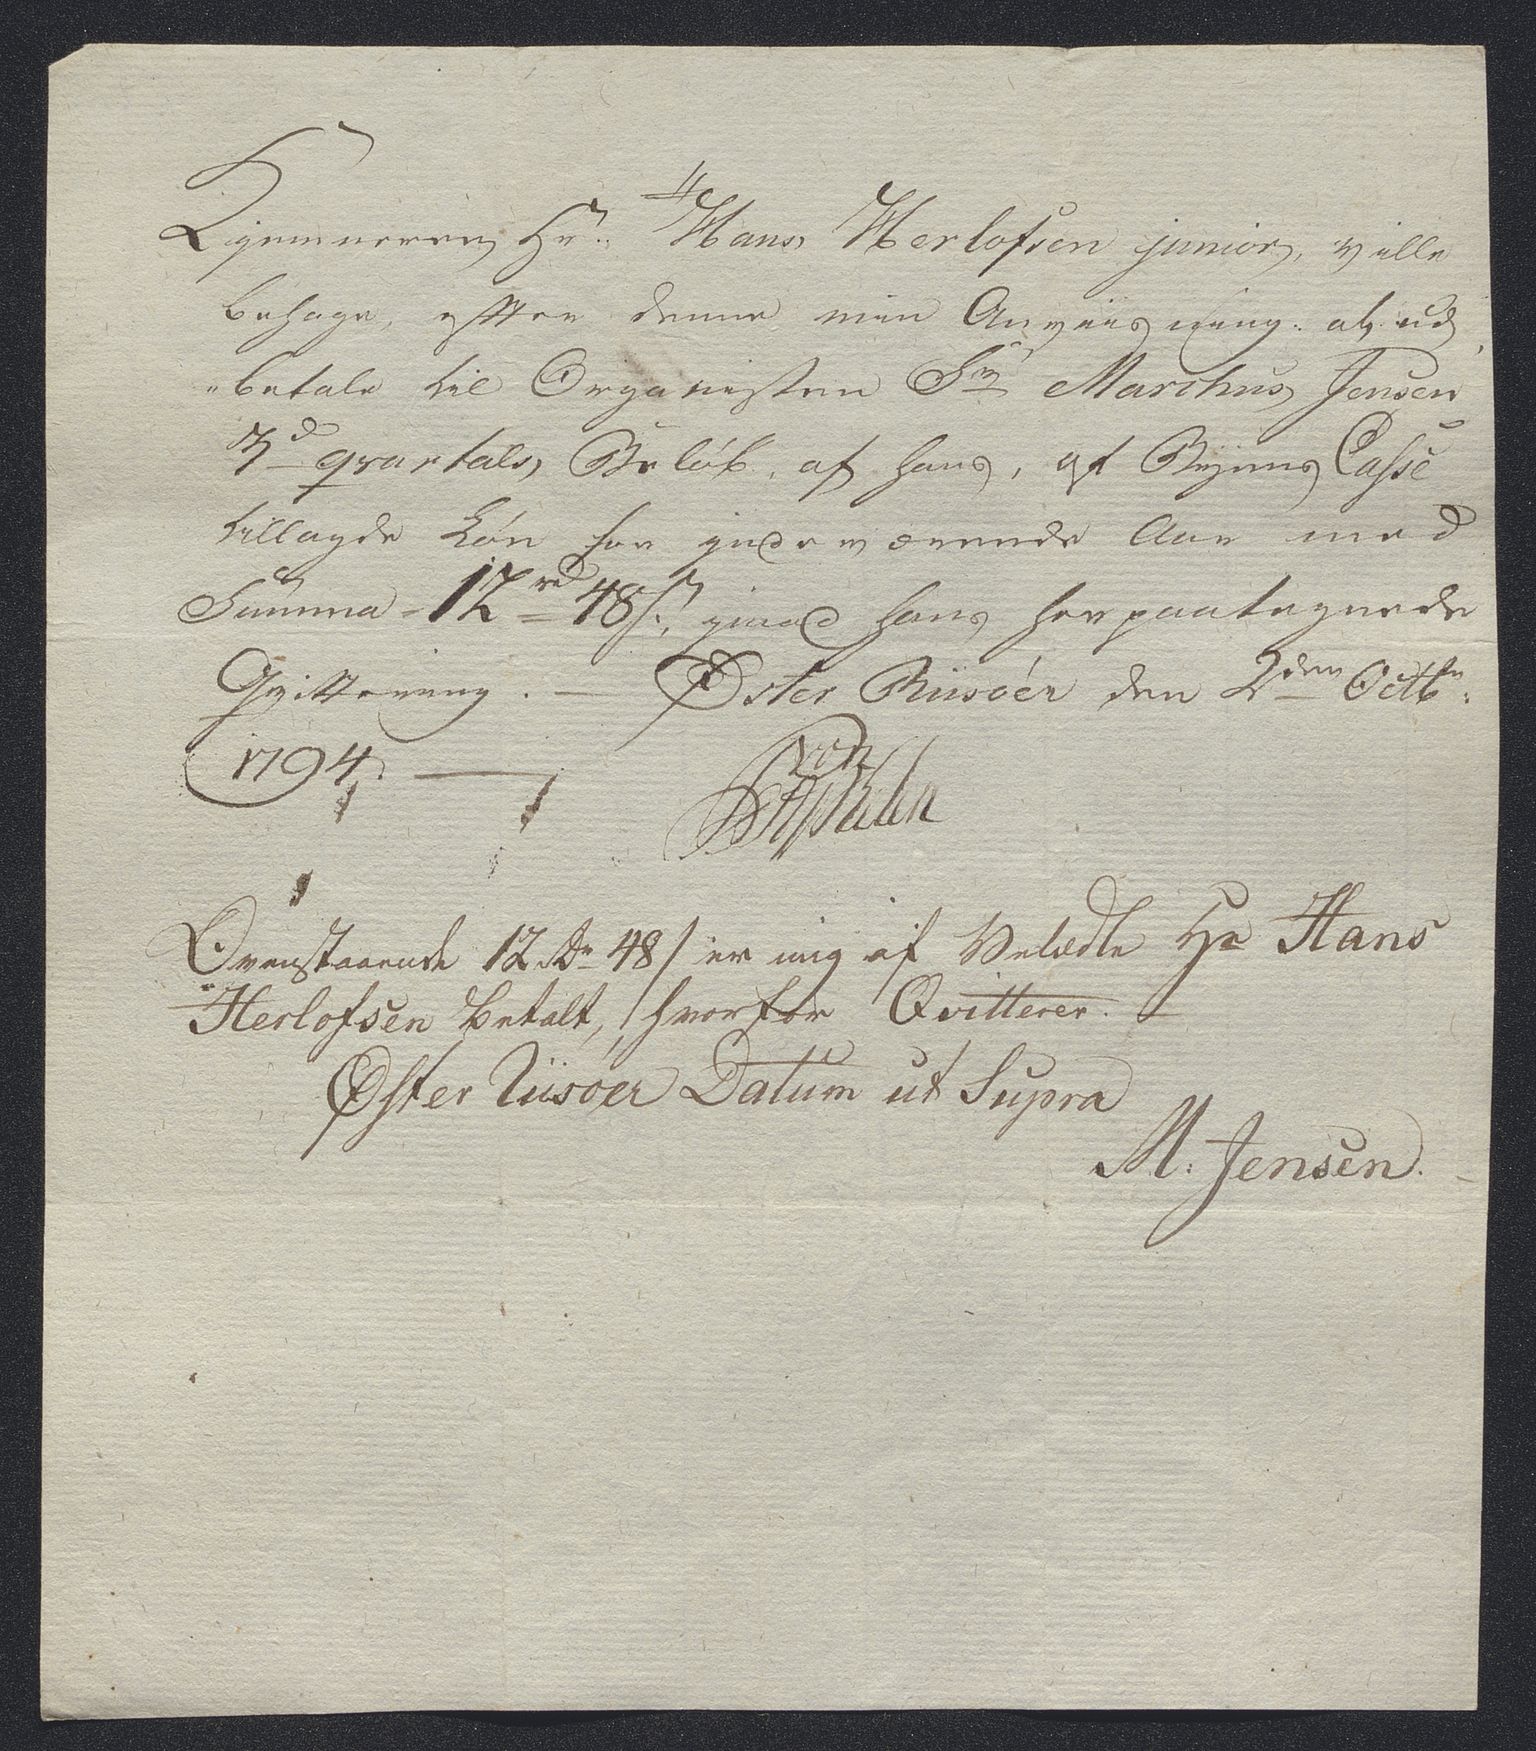 Kjemneren Hr: Hans Herlofsen junior, ville
behage, efter denne min Anviisning. at ud
"betale til Organisten Sr Marchus Jensen
3d qvartals Beløb, af hans, af Byens Casse
tillagde Løn for indeværende Aar med
Summa - 12 rd 48 s, imod hans herpaategnede
Qvittering. — Øster Riisöer den 2den Octbr:
1794. —
von
Ovenstaaende 12 Dr 48 s er mig af Velædle Hr Hans
Herlofsen betalt, hvorfor Qvitterer. —
Øster Riisöer Datum ut Supra
M: Jensen. -